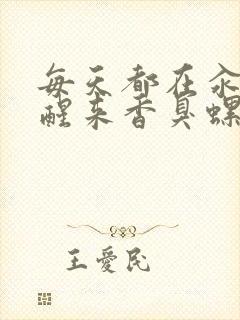 每天都在汆
醒来香臭螺
王爱民